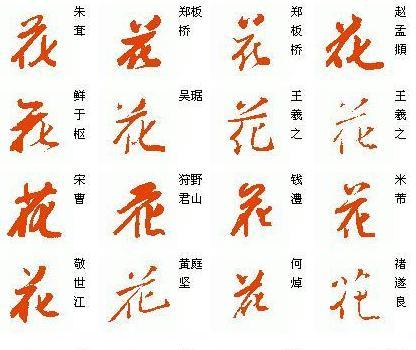 花 朱耷
花 郑板桥
花 郑板桥
花 赵孟頫
花 鲜于枢
花 吴琚
花 王羲之
花 王羲之
花 宋曹
花 狩野君山
花 钱澧
花 米芾
花 敬世江
花 黄庭坚
花 何焯
花 褚遂良